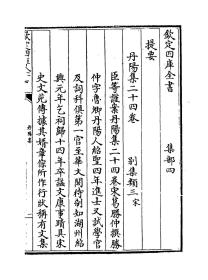 欽定四庫全書
集部四
提要
別集類三宋
丹陽集二十四卷
臣等謹案丹陽集二十四卷宋葛勝仲撰勝
仲字魯卿丹陽人紹聖四年進士又試學官
及詞科俱第一官至華文閣待制知湖州紹
興元年乞祠歸十四年卒諡文康事蹟具宋
史文苑傳據其婿章倧所作行狀稱有文集